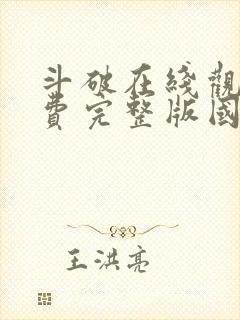 斗破在綫觀
費完整版國
王洪亮